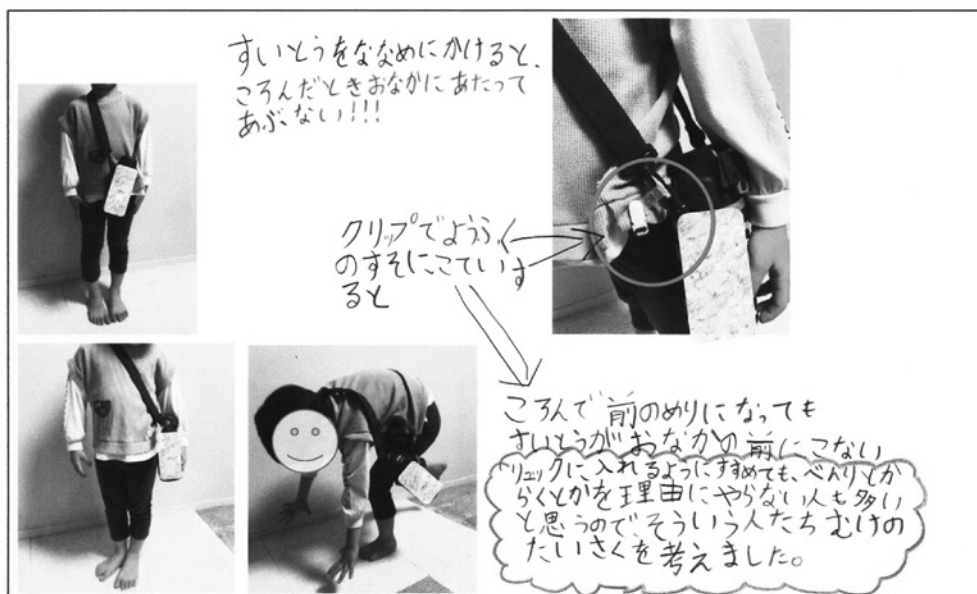 すいとうをななめにかけると、
ころんだときおなかにあたって
あぶない!!!
クリップでようふく
のすそにこていす
ると
ころんで前のめりになっても
すいとうがおなかの前にこない
リュックに入れるようにすすめても、べんりとか
らくとかを理由にやらない人も多い
と思うので、そういう人たちむけの
たいさくを考えました。